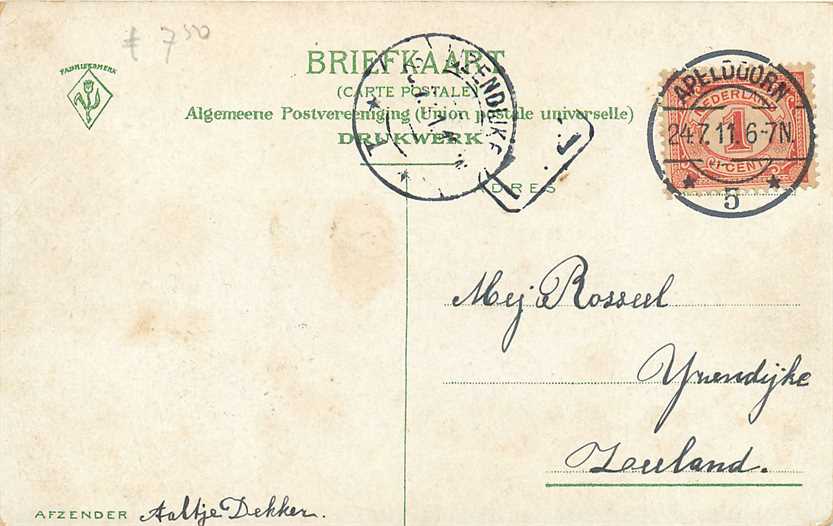 ƒ 7⁵⁰
FABRIEKSMERK
BRIEFKAART
(CARTE POSTALE)
Algemeene Postvereeniging (Union postale universelle)
DRUKWERK
APELDOORN
24.7.11.6-7N.
5
NEDERLAND
1
CENT
Mej Rosseel
Yzendijke
Zeeland.
AFZENDER Aaltje Dekker.